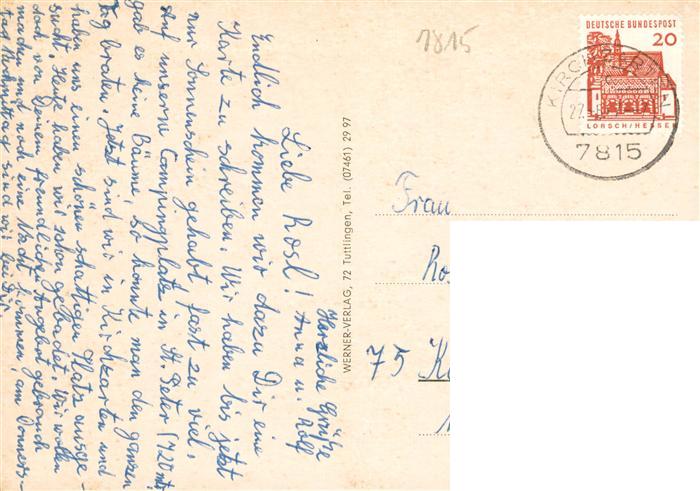 Liebe Rosl!
Endlich kommen wir dazu Dir eine
Karte zu schreiben. Wir haben bis jetzt
nur Sonnenschein gehabt, fast zu viel.
Auf unserm Campingplatz in St. Peter (720 m)
gab es keine Bäume, so konnte man den ganzen
Tag braten. Jetzt sind wir in Kirchzarten und
haben uns einen schönen schattigen Platz ausge-
sucht. Heute haben wir schon gebadet. Wir wollen
doch von Deinem freundlichen Angebot gebrauch
machen und noch eine Nacht kommen, am Donners-
tag Nachmittag sind wir bei Dir.
Herzliche Grüße
Anna u. Rolf
WERNER-VERLAG, 72 Tuttlingen, Tel. (07461) 29 97
7815
DEUTSCHE BUNDESPOST
20
LORSCH/HESSEN
KIRCHZARTEN
7815
Frau
75